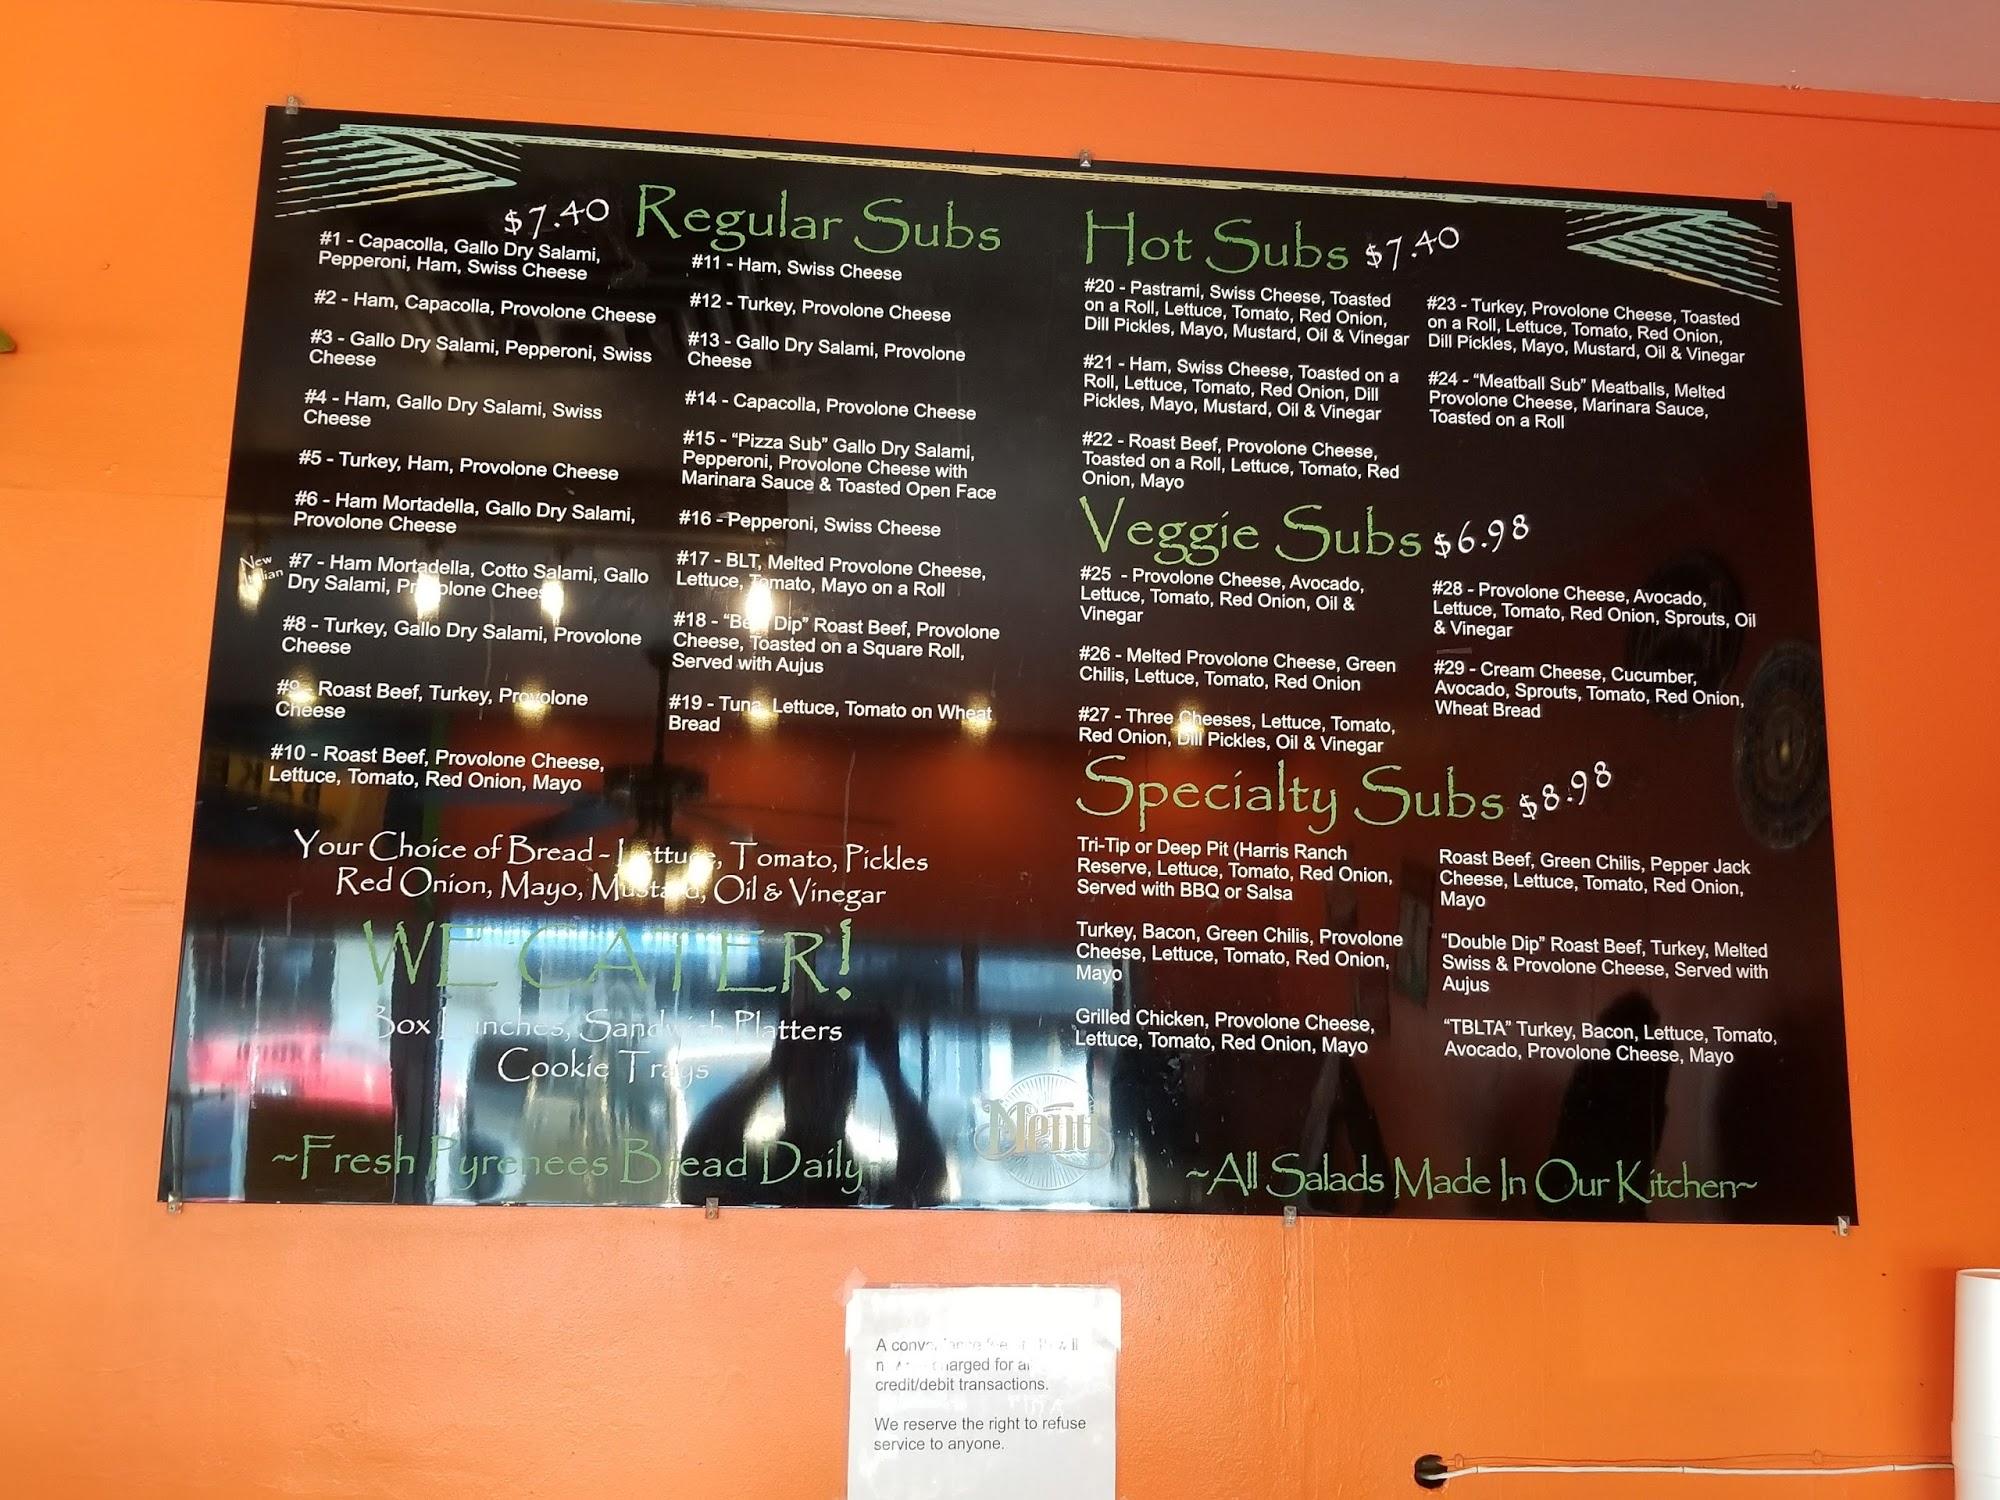 $7.40 Regular Subs
#1 - Capacolla, Gallo Dry Salami,
Pepperoni, Ham, Swiss Cheese
#2 - Ham, Capacolla, Provolone Cheese
#3 - Gallo Dry Salami, Pepperoni, Swiss
Cheese
#4 - Ham, Gallo Dry Salami, Swiss
Cheese
#5 - Turkey, Ham, Provolone Cheese
#6 - Ham Mortadella, Gallo Dry Salami,
Provolone Cheese
New
#7 - Ham Mortadella, Cotto Salami, Gallo
Dry Salami, Provolone Cheese
#8 - Turkey, Gallo Dry Salami, Provolone
Cheese
#9 - Roast Beef, Turkey, Provolone
Cheese
#10 - Roast Beef, Provolone Cheese,
Lettuce, Tomato, Red Onion, Mayo
#11 - Ham, Swiss Cheese
#12 - Turkey, Provolone Cheese
#13 - Gallo Dry Salami, Provolone
Cheese
#14 - Capacolla, Provolone Cheese
#15 - “Pizza Sub” Gallo Dry Salami,
Pepperoni, Provolone Cheese with
Marinara Sauce & Toasted Open Face
#16 - Pepperoni, Swiss Cheese
#17 - BLT, Melted Provolone Cheese,
Lettuce, Tomato, Mayo on a Roll
#18 - “Beef Dip” Roast Beef, Provolone
Cheese, Toasted on a Square Roll,
Served with Aujus
#19 - Tuna, Lettuce, Tomato on Wheat
Bread
Your Choice of Bread - Lettuce, Tomato, Pickles
Red Onion, Mayo, Mustard, Oil & Vinegar
WE CATER!
Box Lunches, Sandwich Platters
Cookie Trays
~Fresh Pyrenees Bread Daily~
Hot Subs $7.40
#20 - Pastrami, Swiss Cheese, Toasted
on a Roll, Lettuce, Tomato, Red Onion,
Dill Pickles, Mayo, Mustard, Oil & Vinegar
#21 - Ham, Swiss Cheese, Toasted on a
Roll, Lettuce, Tomato, Red Onion, Dill
Pickles, Mayo, Mustard, Oil & Vinegar
#22 - Roast Beef, Provolone Cheese,
Toasted on a Roll, Lettuce, Tomato, Red
Onion, Mayo
#23 - Turkey, Provolone Cheese, Toasted
on a Roll, Lettuce, Tomato, Red Onion,
Dill Pickles, Mayo, Mustard, Oil & Vinegar
#24 - “Meatball Sub” Meatballs, Melted
Provolone Cheese, Marinara Sauce,
Toasted on a Roll
Veggie Subs $6.98
#25 - Provolone Cheese, Avocado,
Lettuce, Tomato, Red Onion, Oil &
Vinegar
#26 - Melted Provolone Cheese, Green
Chilis, Lettuce, Tomato, Red Onion
#27 - Three Cheeses, Lettuce, Tomato,
Red Onion, Dill Pickles, Oil & Vinegar
#28 - Provolone Cheese, Avocado,
Lettuce, Tomato, Red Onion, Sprouts, Oil
& Vinegar
#29 - Cream Cheese, Cucumber,
Avocado, Sprouts, Tomato, Red Onion,
Wheat Bread
Specialty Subs $8.98
Tri-Tip or Deep Pit (Harris Ranch
Reserve, Lettuce, Tomato, Red Onion,
Served with BBQ or Salsa
Turkey, Bacon, Green Chilis, Provolone
Cheese, Lettuce, Tomato, Red Onion,
Mayo
Grilled Chicken, Provolone Cheese,
Lettuce, Tomato, Red Onion, Mayo
Roast Beef, Green Chilis, Pepper Jack
Cheese, Lettuce, Tomato, Red Onion,
Mayo
“Double Dip” Roast Beef, Turkey, Melted
Swiss & Provolone Cheese, Served with
Aujus
“TBLTA” Turkey, Bacon, Lettuce, Tomato,
Avocado, Provolone Cheese, Mayo
Menu
~All Salads Made In Our Kitchen~
A
charged for
credit/debit transactions.
We reserve the right to refuse
service to anyone.